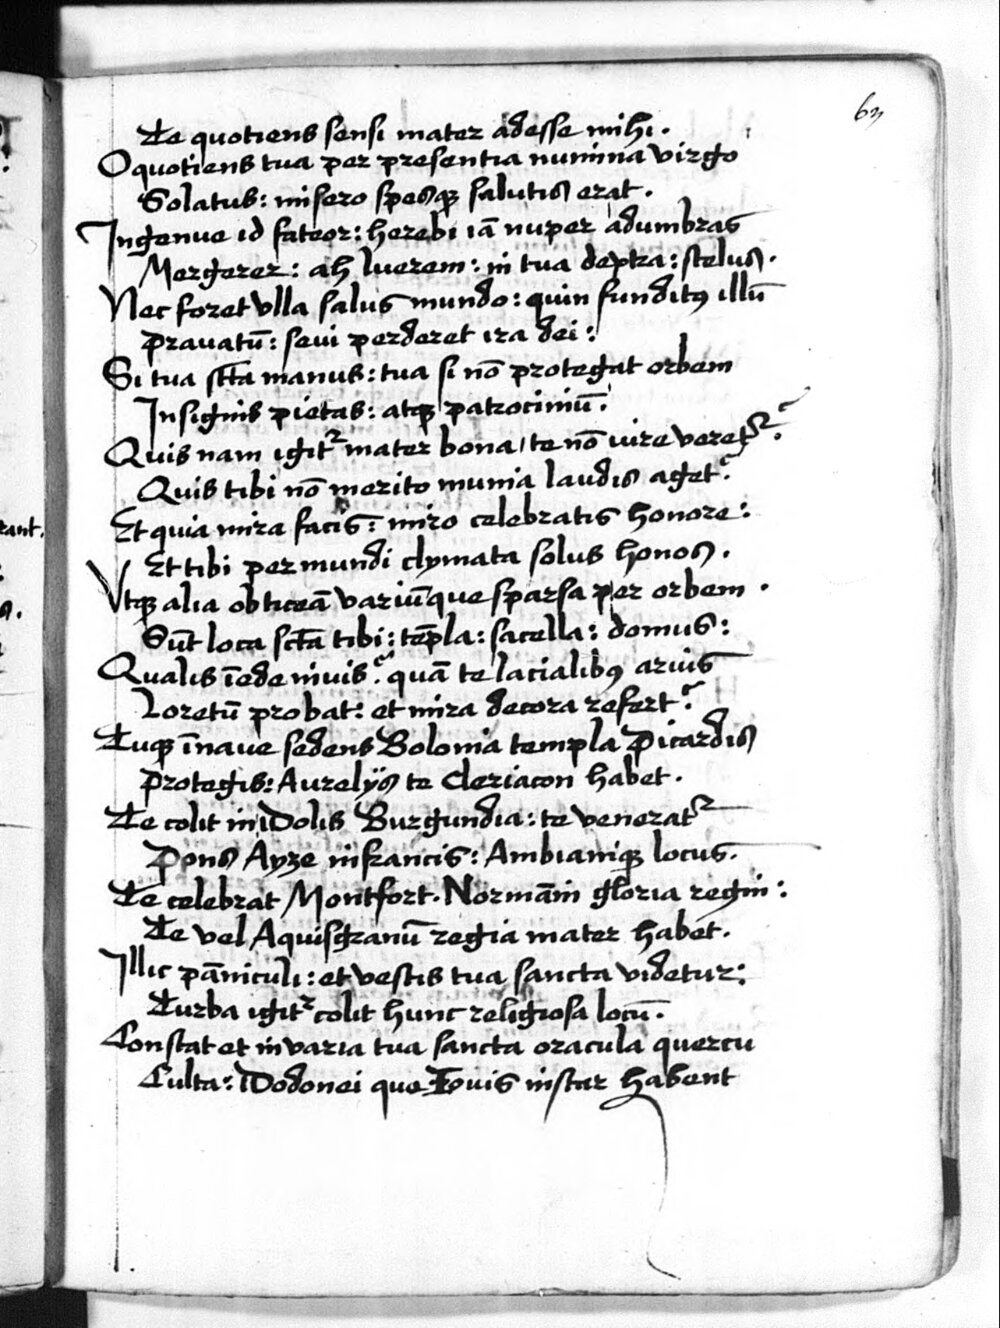 63
Te quotiens sensi mater adesse mihi.
O quotiens tua per presentia numina virgo
Solatus: misero spesqꝫ salutis erat.
Ingenue id fateor: herebi iā nuper adumbras
Mergerer: ah luerem: ni tua dextra: scelus.
Nec foret vlla salus mundo: quin funditꝰ illū
Pravatū: sevi perderet ira dei:
Si tua scta manus: tua si nō protegat orbem
Insignis pietas: atqꝫ patrociniū:
Quis nam igit᷑ mater bona / te nō iure veret᷑?
Quis tibi nō merito munia laudis aget?
Et quia mira facis: miro celebratis honore:
Et tibi per mundi clymata solus honos.
Vtqꝫ alia obticeā variūque sparsa per orbem.
Sūt loca scta tibi: tēpla: sacella: domus:
Qualis īede nivis? quā te lacialibꝰ arvis
Loretū probat: et mira decora refert?
Tuqꝫ īnave sedens Bolonia templa Picardis
Protegis: Aurelijs te Cleriacon habet.
Te colit in Dolis Burgundia: te venerat᷑
Pons Ayze in francis: Ambianiqꝫ locus.
Te celebrat Montfort. Normāni gloria regni:
Te vel Aquisgranū regia mater habet.
Illic pāniculi: et vestis tua sancta videtur:
Turba igit᷑ colit hunc religiosa locū.
Constat et in varia tua sancta oracula quercu
Culta: Dodonei que Iovis instar habent
rant.